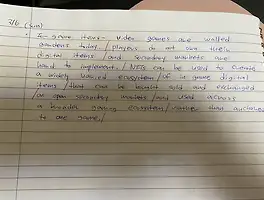 7/6 (Sun)
• In game item - Video games are walled
gardens today / players do not own their
digital items and secondary markets are
hard to implement. / NFTs can be used to create
a widely varied ecosystem / of in game digital
items / that can be bought sold and exchanged
on open secondary markets / and used across
a broader gaming ecosystem / rather than anchored
to one game /